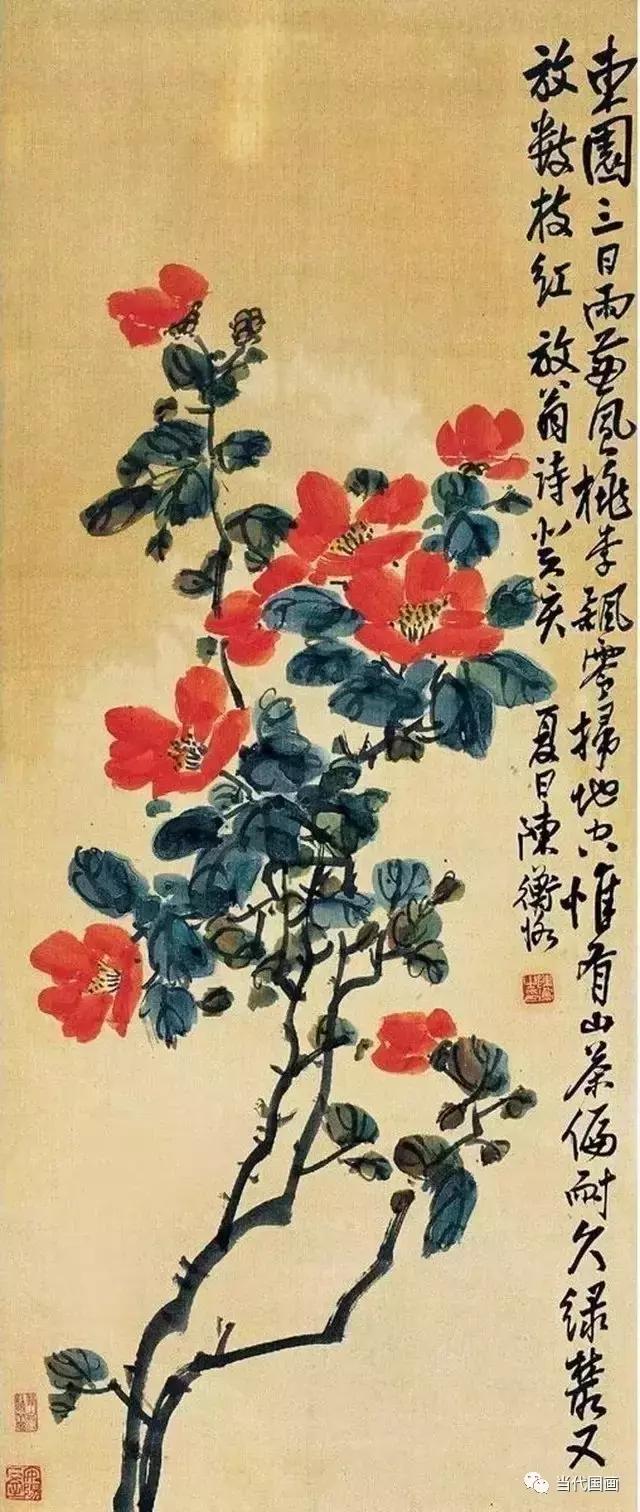 東園三日雨兼風桃李飄零掃地空惟有山茶偏耐久綠叢又
放數枝紅 放翁詩 癸亥
夏日陳衡恪
当代国画